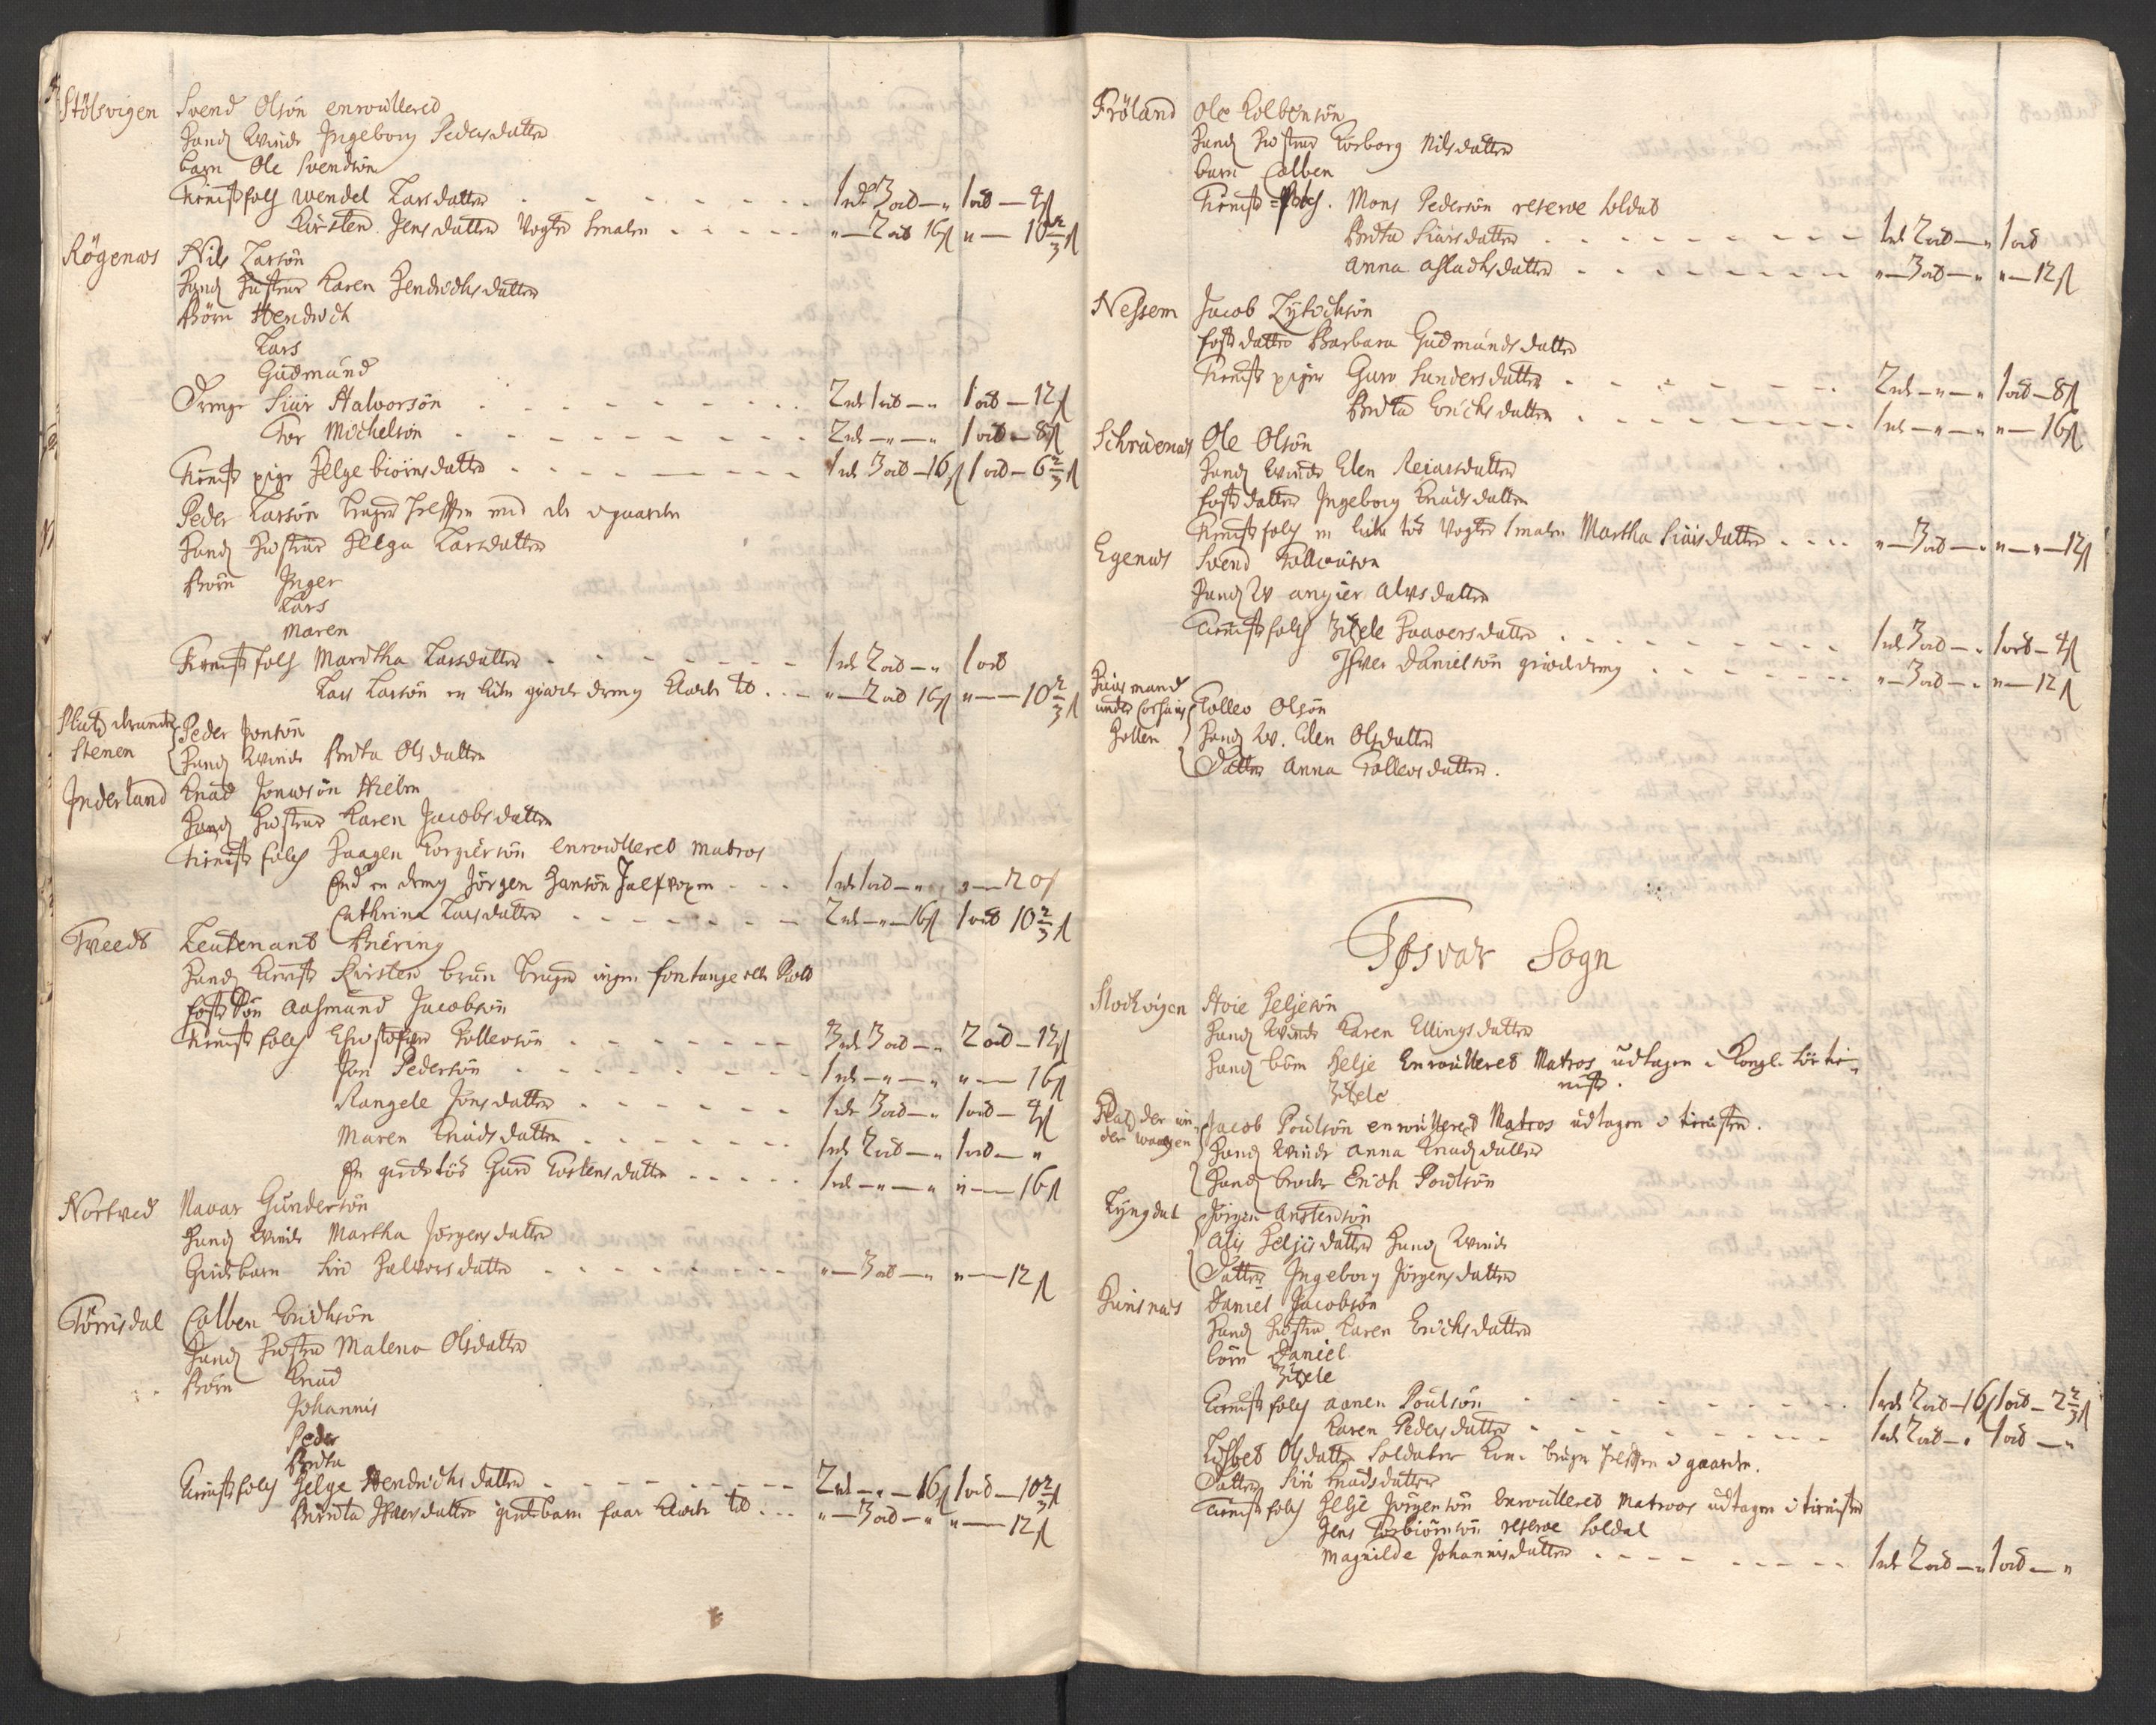 Stölsvigen Svend Olsön enroullered
Hans Qvinde Ingeborg Pedersdatter
barn Ole Svendsön
Tienistfolch Wendel Larsdatter 1 rdr 3 ort — " 1 ort — 4 ß
Kirsten Jensdatter Vogter Smalen " — 2 ort 16 ß " — 10 2/3 ß
Rögenæs Nils Larsön
Hans Hustrue Karen Hendrichsdatter
Börn Hendrich
Lars
Gudmund
Drenge Siur Halvorsön 2 rdr 1 ort — " 1 ort — 12 ß
Tor Michelsön 2 rdr — " — " 1 ort — 8 ß
Tienist pige Helge biörnsdatter 1 rdr 3 ort — 16 ß 1 ort — 6 2/3 ß
Peder Larsön bruger helften
Hans Hustrue Helga Larsdatter
Börn Inger
Lars
Maren
Tienistfolch Maritha Larsdatter 1 rdr 2 ort — " 1 ort
Lars Larsön en liden giæde dreng Klæde til " — 2 ort 16 ß " — 10 2/3 ß
Stenen Peder Jonsön
Hans Qvinde Brita Olsdatter
Inderland Knud Jonæsön Hielm
Hans Hustrue Karen Jacobsdatter
Tienist folch Haagen Torgiersön enroullered matros
End en dreng Jörgen Hansön 1 rdr 1 ort — " " — 20 ß
Cathrina Larsdatter 2 rdr — " — 16 ß 1 ort 10 2/3 ß
Tveedt Leutenant Knering
Hans Kieriste Kirsten brun bruger ingen fontange eller Kiæd
foster Sön Aasmund Jacobsön
Tienist folch Christopher Tollevsön 3 rdr 3 ort — " 2 ort — 12 ß
Jon Pedersön 1 rdr — " — " " — 16 ß
Rangele Jonsdatter 1 rdr 3 ort — " 1 ort — 4 ß
Maren Knudsdatter 1 rdr 2 ort — " 1 ort — "
En giede tös Guro Torstensdatter 1 rdr — " — " " — 16 ß
Nortved Navar Gundersön
Hans Qvinde Martha Jörgensdatter
Giædebarn Siri Halvorsdatter " — 3 ort — " " — 12 ß
Tömisdal Colben Erichsön
Hans Hustru Malena Olsdatter
Börn Knud
Johannis
Peder
Brita
Tienistfolch Helge Hendrichsdatter 2 rdr — " — 16 ß 1 ort — 10 2/3 ß
Birrita Ifversdatter giedebarn faar Klæde til " — 3 ort — " " — 12 ß
Fröland Ole Kolbensön
Hans Hustrue Torborg Nilsdatter
barn Colben
Tienist folch. Mons Pedersön reserve soldat
Brita Siursdatter 1 rdr 2 ort — " 1 ort
Anna Aslachsdatter " — 3 ort — " " — 12 ß
Nessem Jacob Lytichsön
fosterdatter Barbara Gudmundsdatter
Tienist piger Guro Sundersdatter 2 rdr — " — " 1 ort — 8 ß
Brita Erichsdatter 1 rdr — " — " " — 16 ß
Schrüenæs Ole Olsön
Hans Qvinde Elen Reiarsdatter
fosterdatter Ingeborg Knudsdatter
Tienist folch en liden tös Vogter Smalen Martha Siursdatter " — 3 ort — " " — " — 12 ß
Egenæs Svend Tollevsön
Hans Q Angier Alvsdatter
Tienistfolch Zitzele Haaversdatter 1 rdr 3 ort — " 1 ort — 4 ß
Ifver Danielsön giædedreng " — 3 ort — " " — 12 ß
Huusmand
under Corshuus
Holten
Tollev Olsön
Hans Q. Elen Olsdatter
Datter Anna Tollevsdatter.
Tøsvar Sogn
Stochvigen Hoie Heljesön
Hans Qvinde Karen Ellingsdatter
Hans börn Helje Enroullered Matros udtagen i Kongl. tie-
nist.
Zitzele
Plads der un-
der waagen Jacob Poulsön enroullered Matros udtagen i tienisten.
Hans Qvinde Anna Knudsdatter
Hans broder Erich Poulsön
Lyngdal Jörgen Anstensön
Asis Heljisdatter Hans Qvinde
Datter Ingeborg Jörgensdatter
Huusnæs Daniel Jacobsön
Hans Hustru Karen Erichsdatter
börn Daniel
Zitzele
Tienist folch Aanen Poulsön 1 rdr 2 ort — 16 ß 1 ort — 2 2/3 ß
Karen Pedersdatter 1 rdr 2 ort — " 1 ort — "
Lisbed Olsdatter Soldater Kone bruger helften i gaarden.
Datter Siri Knudsdatter
Tienist folch Helje Jörgensön Enroullered Matros udtagen i tienisten
Jens Torbiörnsön reserve Soldat
Magnilde Johannisdatter 1 rdr 2 ort — " 1 ort — "